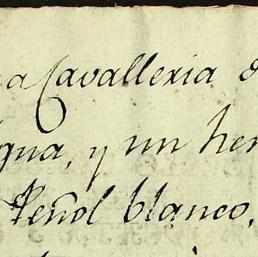 a Cavalleria
gua, y un her
Peñol blanco,